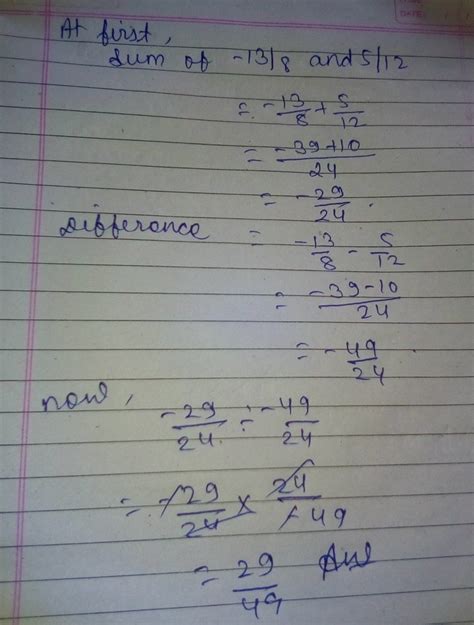 At first,
Sum of -13/8 and 5/12
= -13/8 + 5/12
= -39+10/24
= -29/24.
Difference = -13/8 - 5/12
= -39-10/24
= -49/24
now,
-29/24 ÷ -49/24
= -29/24 × 24/-49
= 29/49 Ans